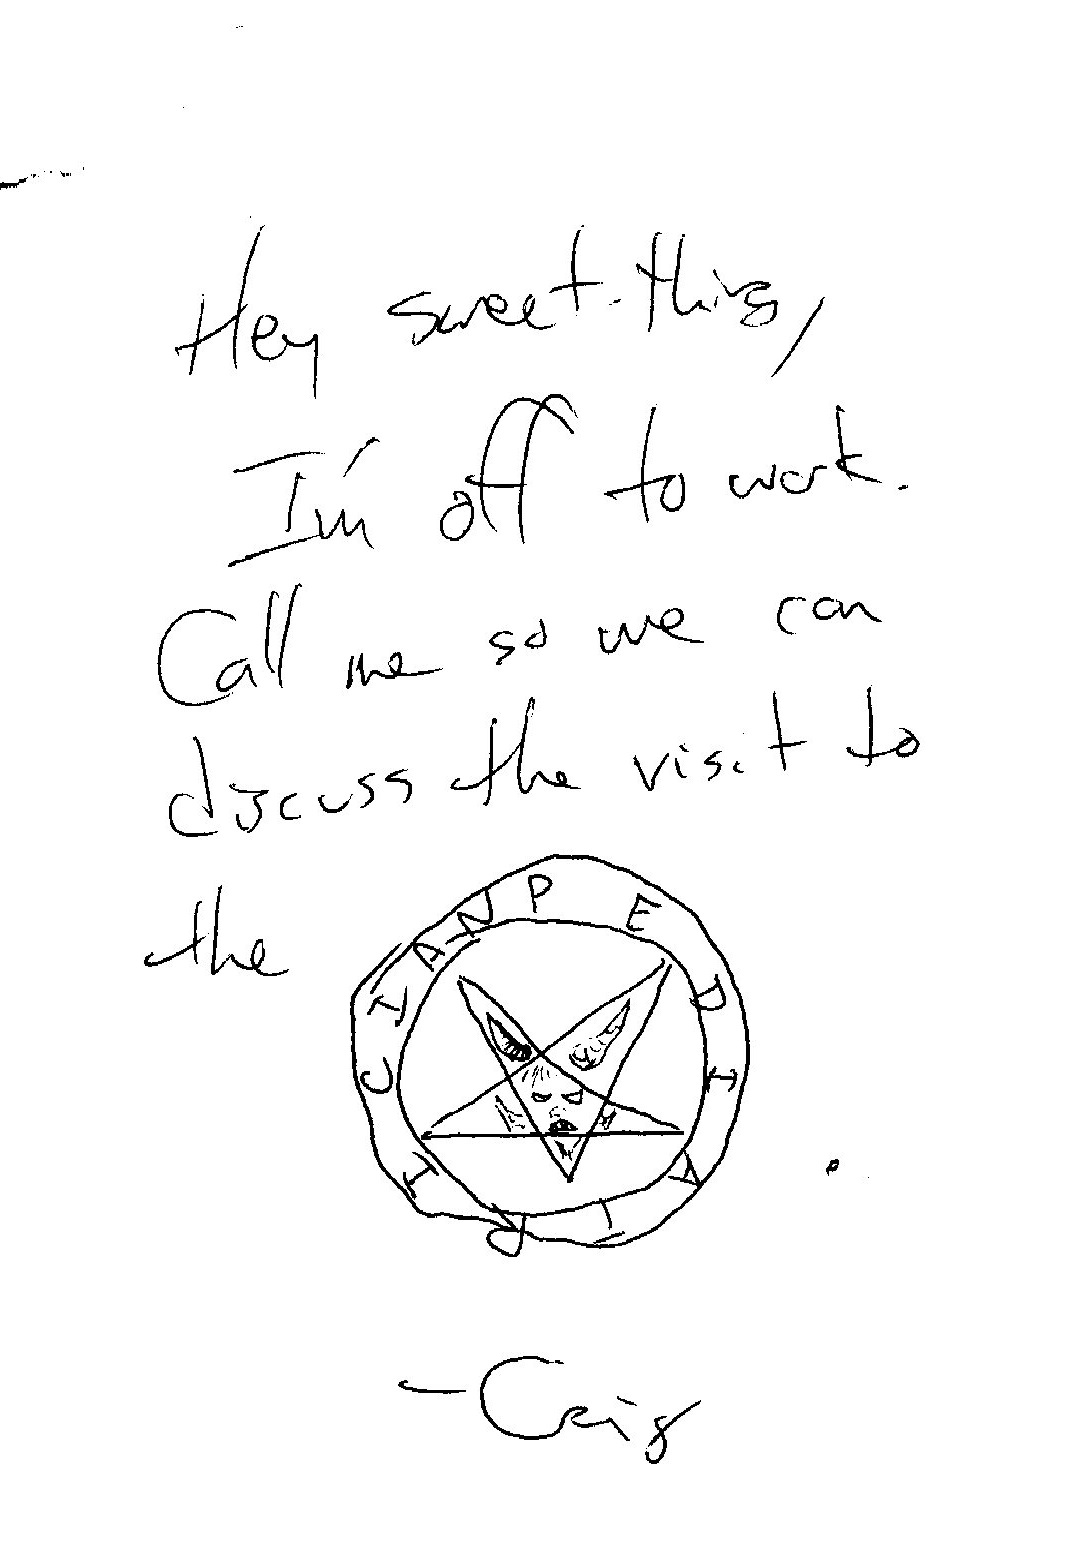 Hey sweet-thing,
I'm off to work.
Call me so we can
discuss the visit to
the PEDIATRICIAN.
-Craig